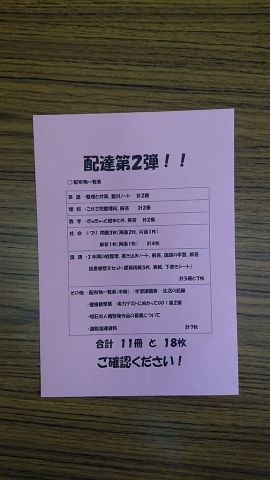 配達第2弾！！
□配布物一覧表
英 語 ・整理と対策、整列ノート 計2冊
理 科 ・これで完璧理科、解答 計2冊
数 学 ・ぎゅぎゅっと総まとめ、解答 計2冊
社 会 ・プリ 問題3枚(両面2枚、片面1枚)
解答1枚(両面1枚) 計4枚
国 語 ・3年間の総整理、書き込みノート、解答、国語の学習、解答
読書感想文セット(原稿用紙5枚、表紙、下書きシート)
計5冊と7枚
その他 ・配布物一覧表(本紙) ・学習課題表 ・生活の記録
・健康観察票 ・実力テストに向かってGO！第2弾
・明石市人権啓発作品の募集について
・進路指導資料 計7枚
合計 11冊 と 18枚
ご確認ください！